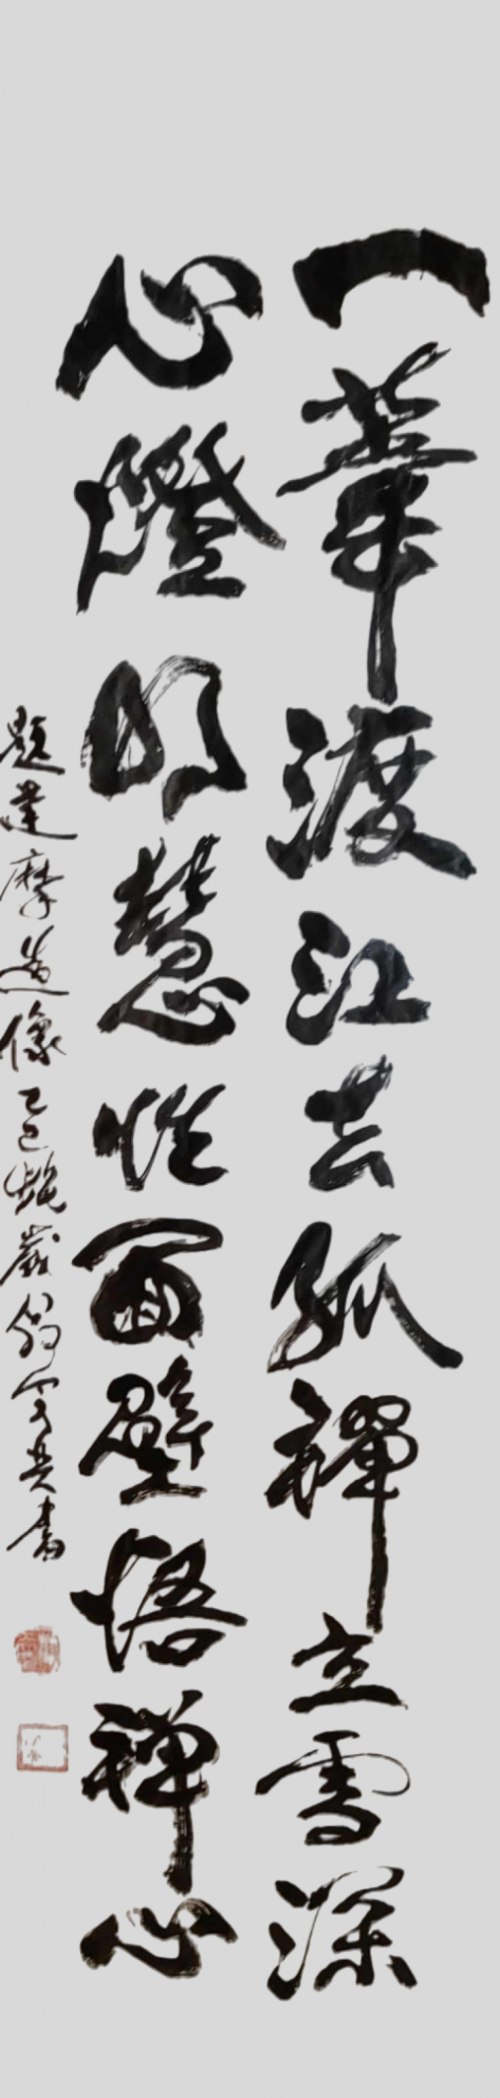 一葦渡江去孤禪立雪深
心燈明慧性面壁悟禪心
題達摩造像乙巳 歲 書